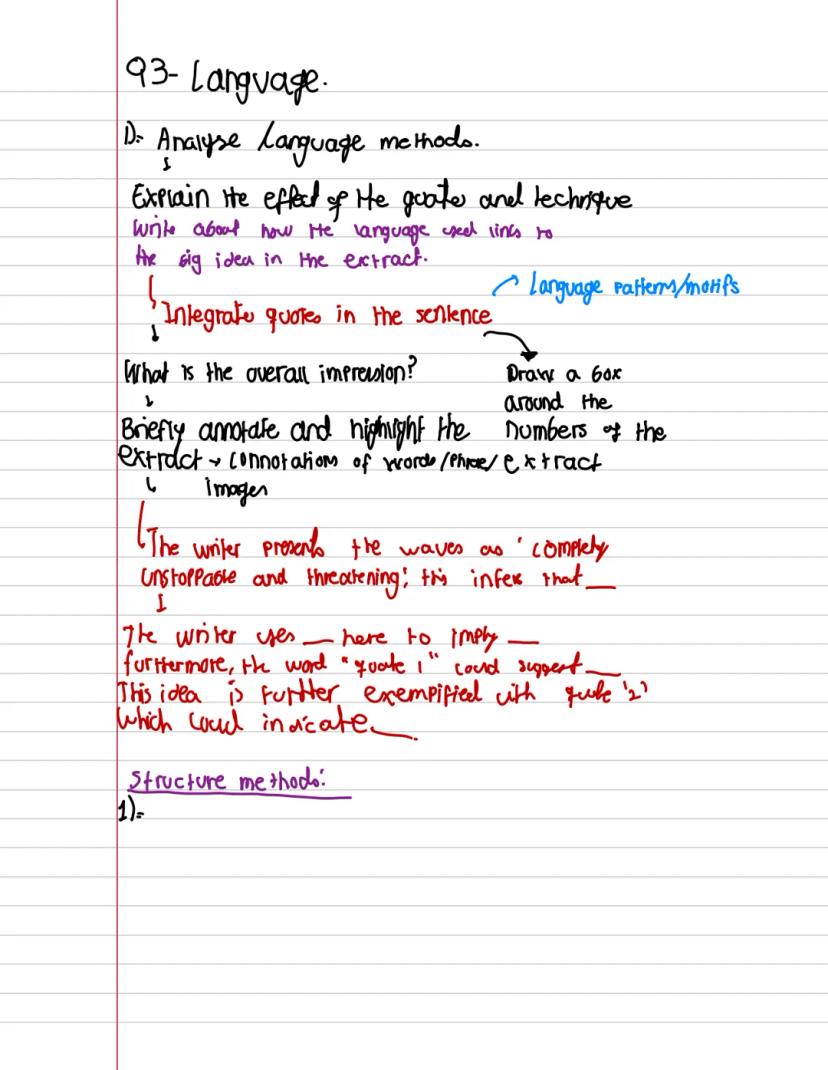 Q3- Language.
1):- Analyse Language methods.
Explain the effect of the quotes and technique
Write about how the language used links to
the big idea in the extract.
Language patterns/motifs
Integrate quotes in the sentence
What is the overall impression?
Draw a box
around the
numbers of the
extract
Briefly annotate and highlight the
extract → connotations of words/phrase/
images
The writer presents the waves as 'complety
unstoppable and threatening', this infers that __
The writer uses __ here to imply __
furthermore, the word "quote 1" could suggest __
This idea is further exempified with quote '2'
which could indicate __.
Structure methods:
1):-